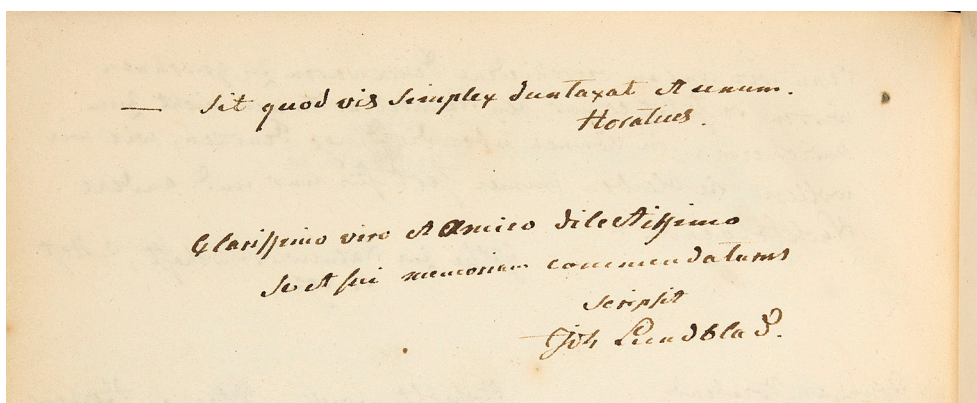 — Sit quod vis simplex duntaxat et unum.
Horatius.
Clarissimo viro et Amico dilectissimo
se et sui memoriam commendaturus
scripsit
Joh Lundblad.